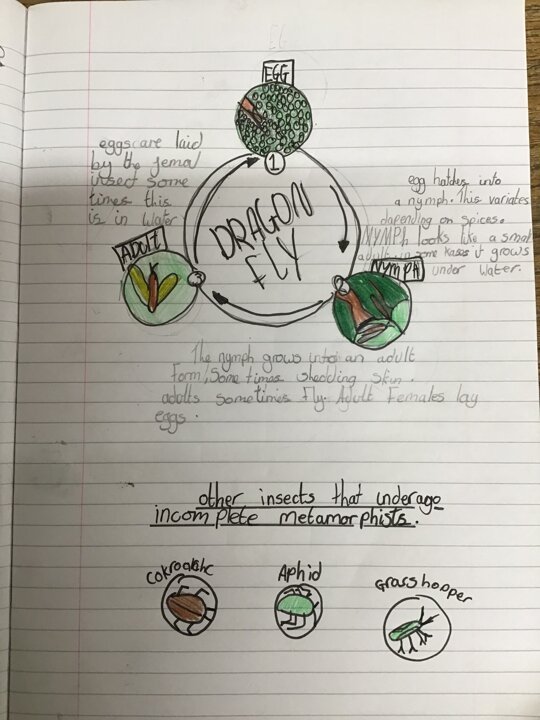 EGG
eggs are laid
by the femal
insect some
times this
is in water
1
egg hatches into
a nymph. This variates
depanding on spices.
NYMPh looks like a small
adult. in some kases it grows
under water.
DRAGON
FLY
ADULT
3
2
NYMPH
The nymph grows into an adult
Form, Some times shedding skin.
adults sometimes Fly. Adult Females lay
eggs.
other insects that underago
incomplete metamorphists.
Aphid
Grasshopper